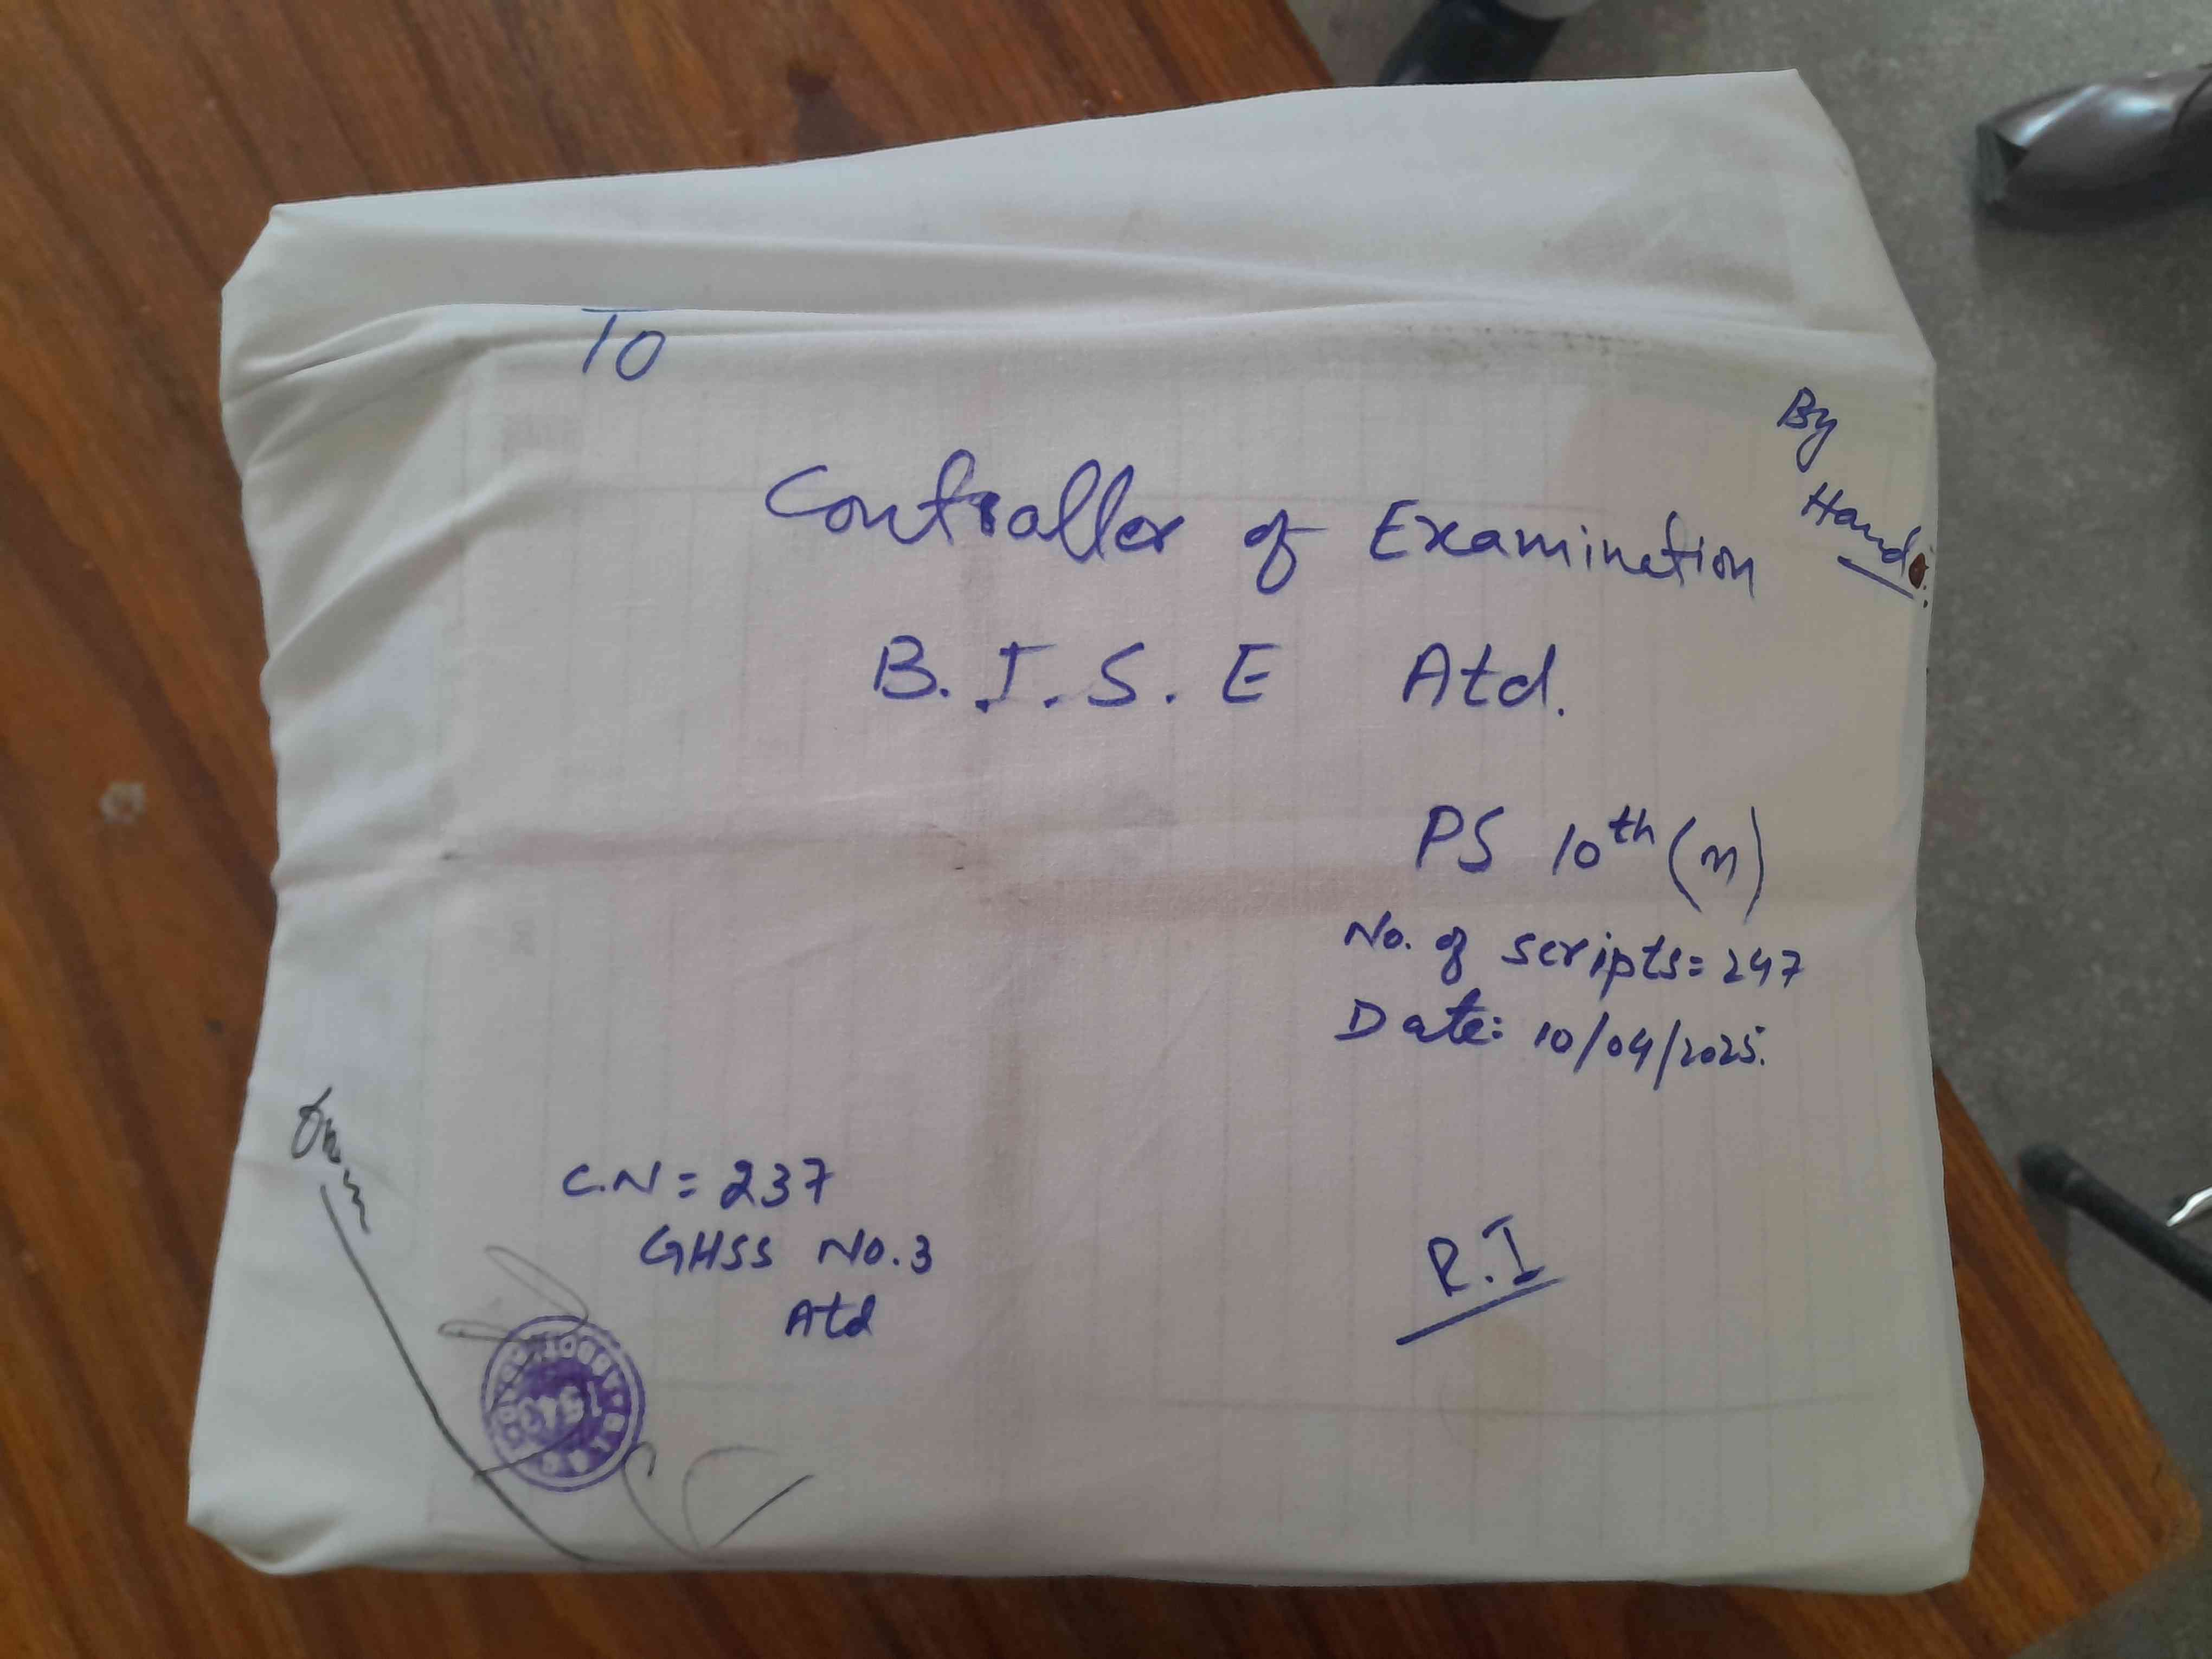 To
By
Hand
Controller of Examination
B.I.S.E Atd.
PS 10th (M)
No. of scripts= 247
Date: 10/04/2025.
C.N = 237
GHSS No.3
Atd
R.I